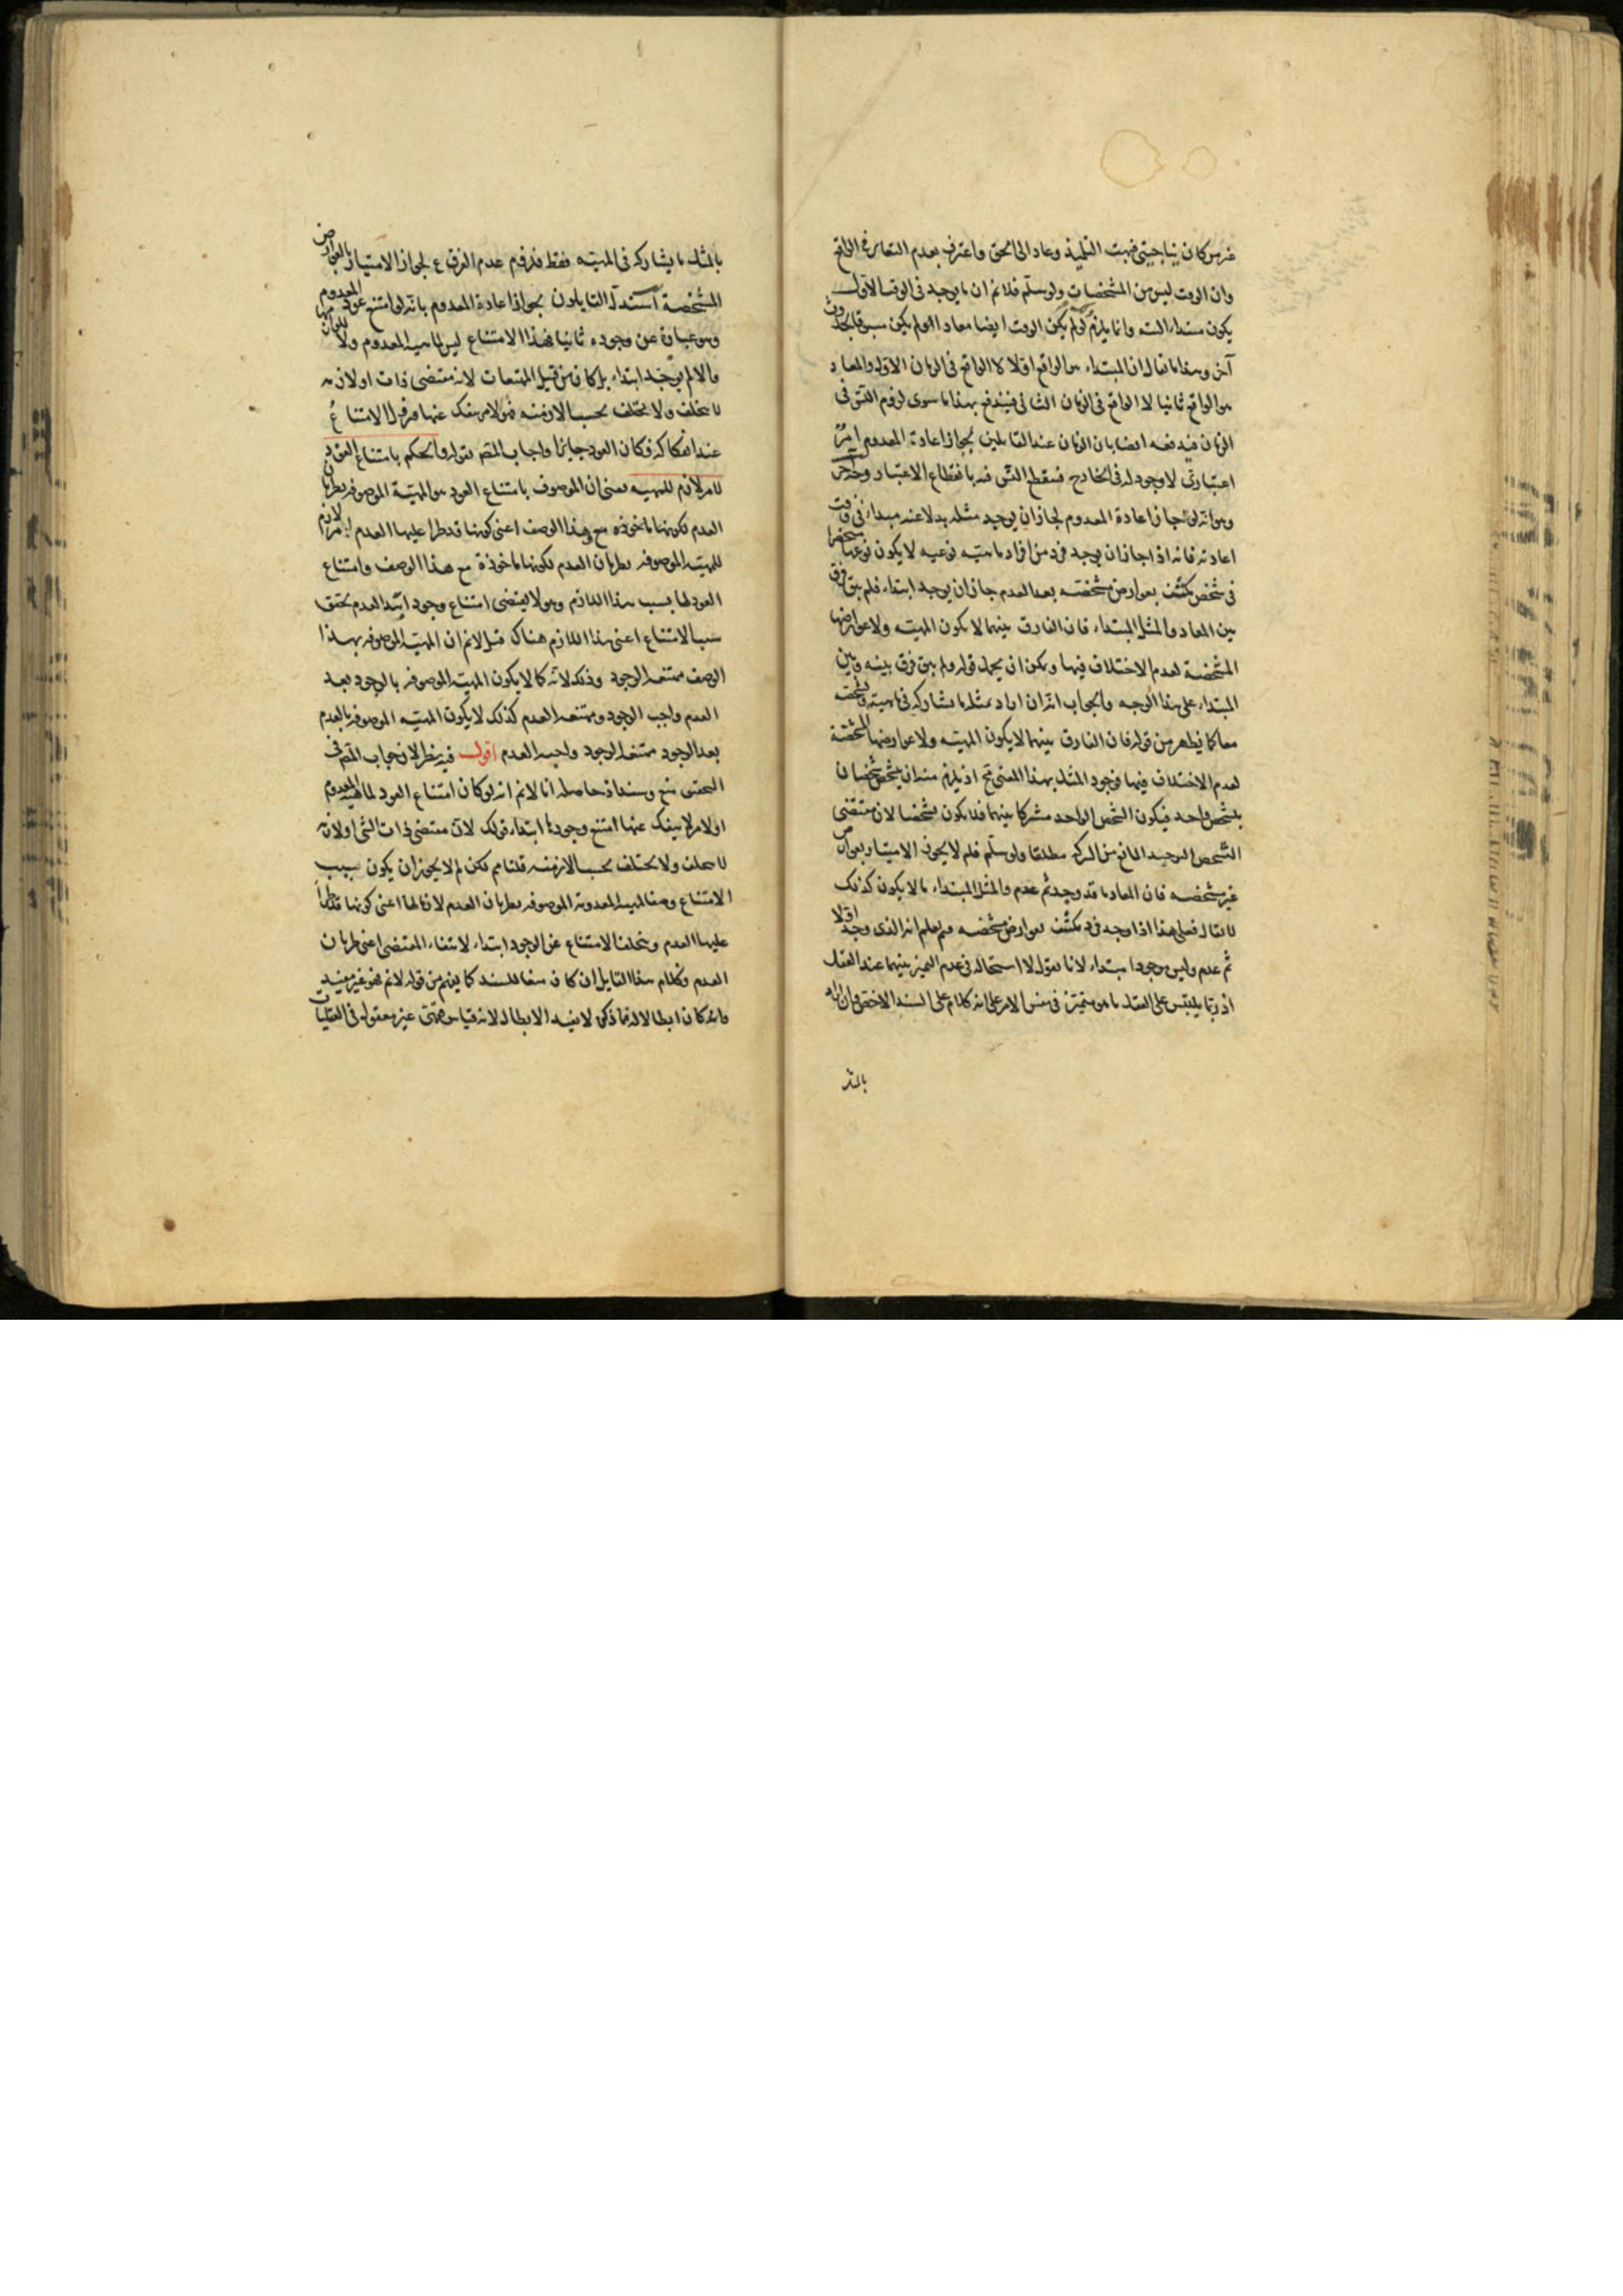 من كان يباحثني فبهت التلميذ وعاد الى الحق واعترف بعدم التغاير في الواقع
وان الوقت ليس من المشخصات ولو سلم فلانم ان ما يوجد في الوقت الاول
يكون مبتداء البتة وانما يلزم لو لم يكن الوقت ايضا معادا او لم يكن مسبوقا بحدوث
آخر وهذا ما يقال ان المبتداء هو الواقع اولا لا الواقع في الزمان الاول والمعاد
هو الواقع ثانيا لا الواقع في الزمان الثاني فيندفع بهذا ما سوى لزوم التس في
الزمان فيدفعه ايضا بان الزمان عند القايلين بجواز اعادة المعدوم امر
اعتباري لا وجود له في الخارج فينقطع التس فيه بانقطاع الاعتبار وجه آخر
وهو انه لو جاز اعادة المعدوم لجاز ان يوجد مثله بدلا عنه مبتداء في وقت
اعادته فانه اذا جاز ان يوجد فرد من افراد ماهيته نوعيه لا يكون نوعها منحصرا
في شخص مكتنف بعوارض مشخصه بعد العدم جاز ان يوجد ابتداء فلم يبق فرق
بين المعاد والمثل المبتداء فان الفارق بينهما لا يكون المهيته ولا عوارضها
المشخصة لعدم الاختلاف فيها ويمكن ان يحمل قوله ولم يبق فرق بينه وبين
المبتداء على هذا الوجه والجواب انه ان اراد بمثله ما يشاركه في ماهيته وتشخصه
معا كما يظهر من قوله فان الفارق بينهما لا يكون المهيته ولا عوارضها المشخصة
لعدم الاختلاف فيها فوجود المثل بهذا المعنى مح اذ يلزم منه ان يتشخص شخصان
بتشخص واحد فيكون التشخص الواحد مشتركا بينهما فلا يكون تشخصا لان مقتضى
التشخص التوحيد المانع من الشركه مطلقا ولو سلم فلم لا يجوز الامتياز بعوارض
غير مشخصه فان المعاد ما قد وجد ثم عدم والمثل المبتداء ما لا يكون كذلك
لا يقال فعلى هذا اذا وجد فرد مكتنف بعوارض مشخصه فبم يعلم انه الذى وجد اولا
ثم عدم وليس موجودا مبتداء لانا نقول لا استحالة في عدم التميز بينهما عند العقل
اذ ربما يلتبس على العقل ما هو متميز في نفس الامر على انه كلام على السند الاخص وان اراد
بالمثل
بالمثل ما يشاركه في المهيته فقط فلزوم عدم الفرق مع لجواز الامتياز بالعوارض
المشخصة استدل القايلون بجواز اعادة المعدوم بانه لو امتنع عود المعدوم
وهو عبارة عن وجوده ثانيا فهذا الامتناع ليس لماهيه المعدوم ولا للوازمها
والا لم يوجد ابتداء بل كان من قبيل الممتنعات لان مقتضى ذات او لازمه
لا يتخلف ولا يختلف بحسب الازمنه فهو لامر ينفك عنها فيزول الامتناع
عند انفكاكه فكان العود جايزا واجاب المص بقوله والحكم بامتناع العود
لامر لازم للمهيه يعنى ان الموصوف بامتناع العود هو المهيته الموصوفه بطريان
العدم لكونها ماخوذه مع هذا الوصف اعنى كونها قد طرا عليها العدم امر لازم
للمهيته الموصوفه بطريان العدم لكونها ماخوذة مع هذا الوصف وامتناع
العود لها بسبب هذا اللازم وهو لا يقتضى امتناع وجود ابتداء لعدم تحقق
سبب الامتناع اعنى هذا اللازم هناك قيل لانم ان المهيته الموصوفه بهذا
الوصف ممتنعه الوجود وذلك لانه كما لا يكون المهيته الموصوفه بالوجود بعد
العدم واجب الوجود وممتنعه العدم كذلك لا يكون المهيته الموصوفه بالعدم
بعد الوجود ممتنعه الوجود واجبه العدم اقول فيه نظر لان جواب المص في
التحقيق منع وسند اذ حاصله انا لانم انه لو كان امتناع العود لماهيه المعدوم
او لامر لا ينفك عنها امتنع وجودها ابتداء قولك لان مقتضى ذات الشئ او لازمه
لا يتخلف ولا يختلف بحسب الازمنه قلنا نعم لكن لم لا يجوز ان يكون سبب
الامتناع وصفا للمهيه المعدومة الموصوفه بطريان العدم لازما لها اعنى كونها قد طرأ
عليها العدم ويتخلف الامتناع عن الوجود ابتداء لانتفاء المقتضى اعنى طريان
العدم وكلام هذا القايل ان كان منعا للسند كما يفهم من قوله لانم فهو غير مفيد
وان كان ابطالا له فما ذكره لا يفيد الابطال لانه قياس فقهي غير معقول في العقليات